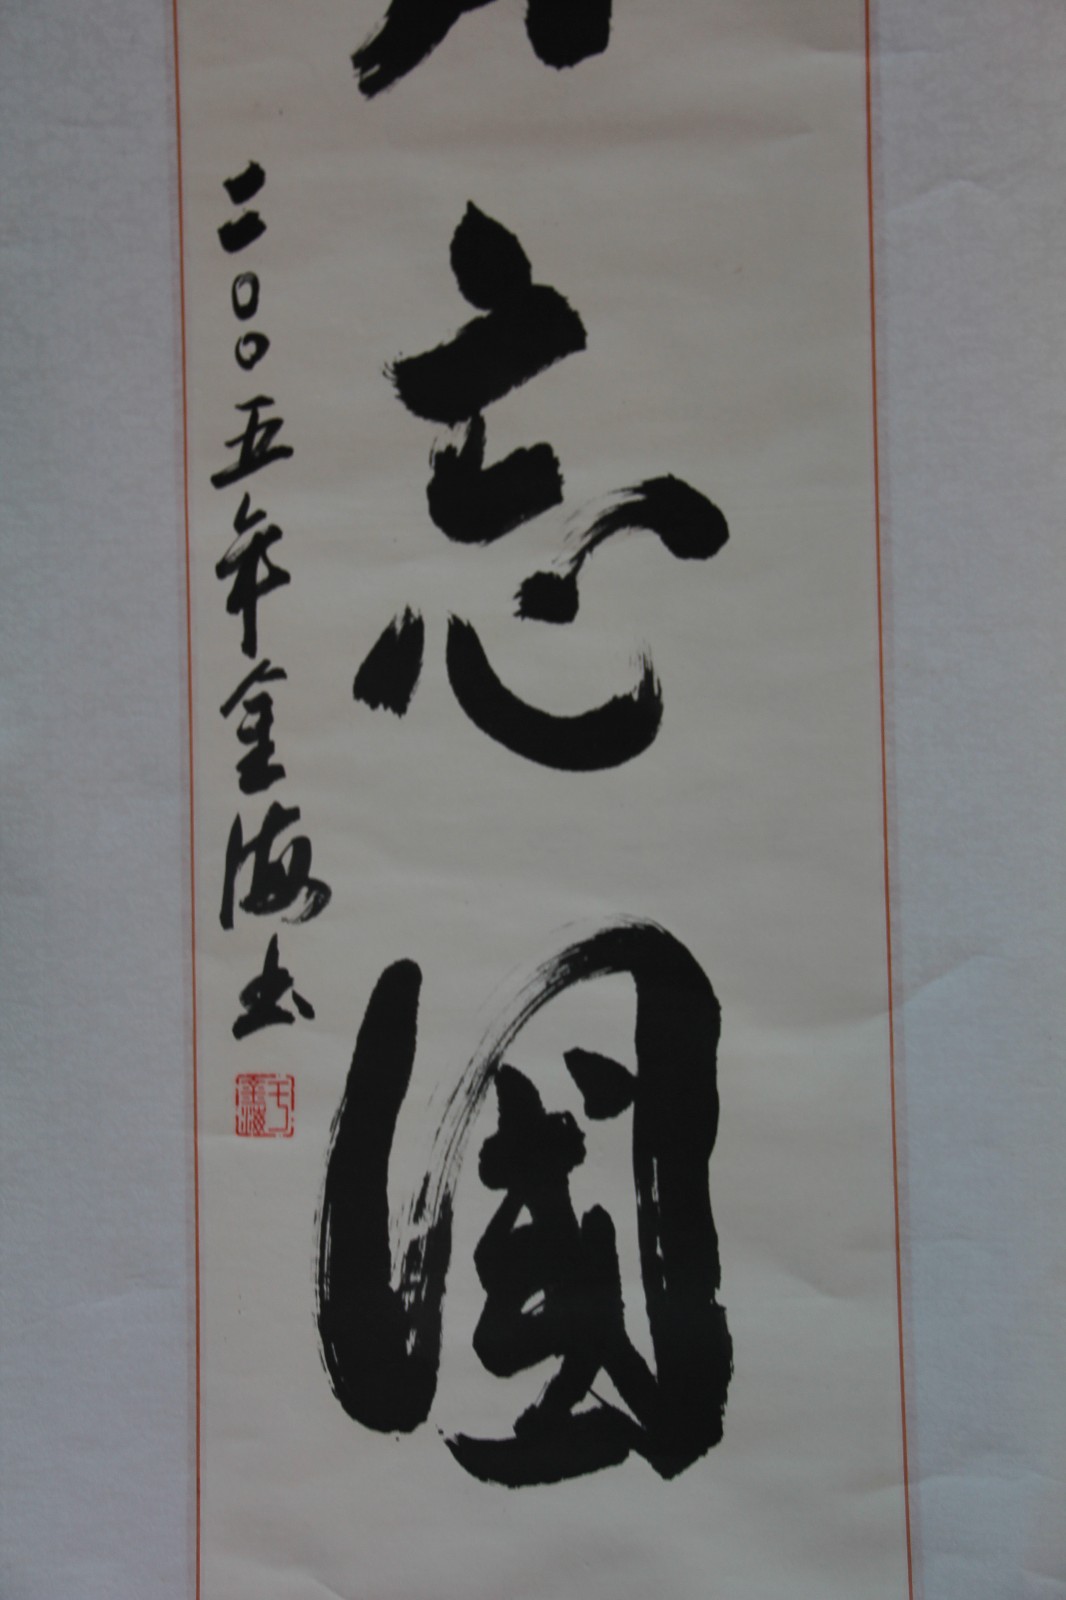 忘國
二〇〇五年金海书